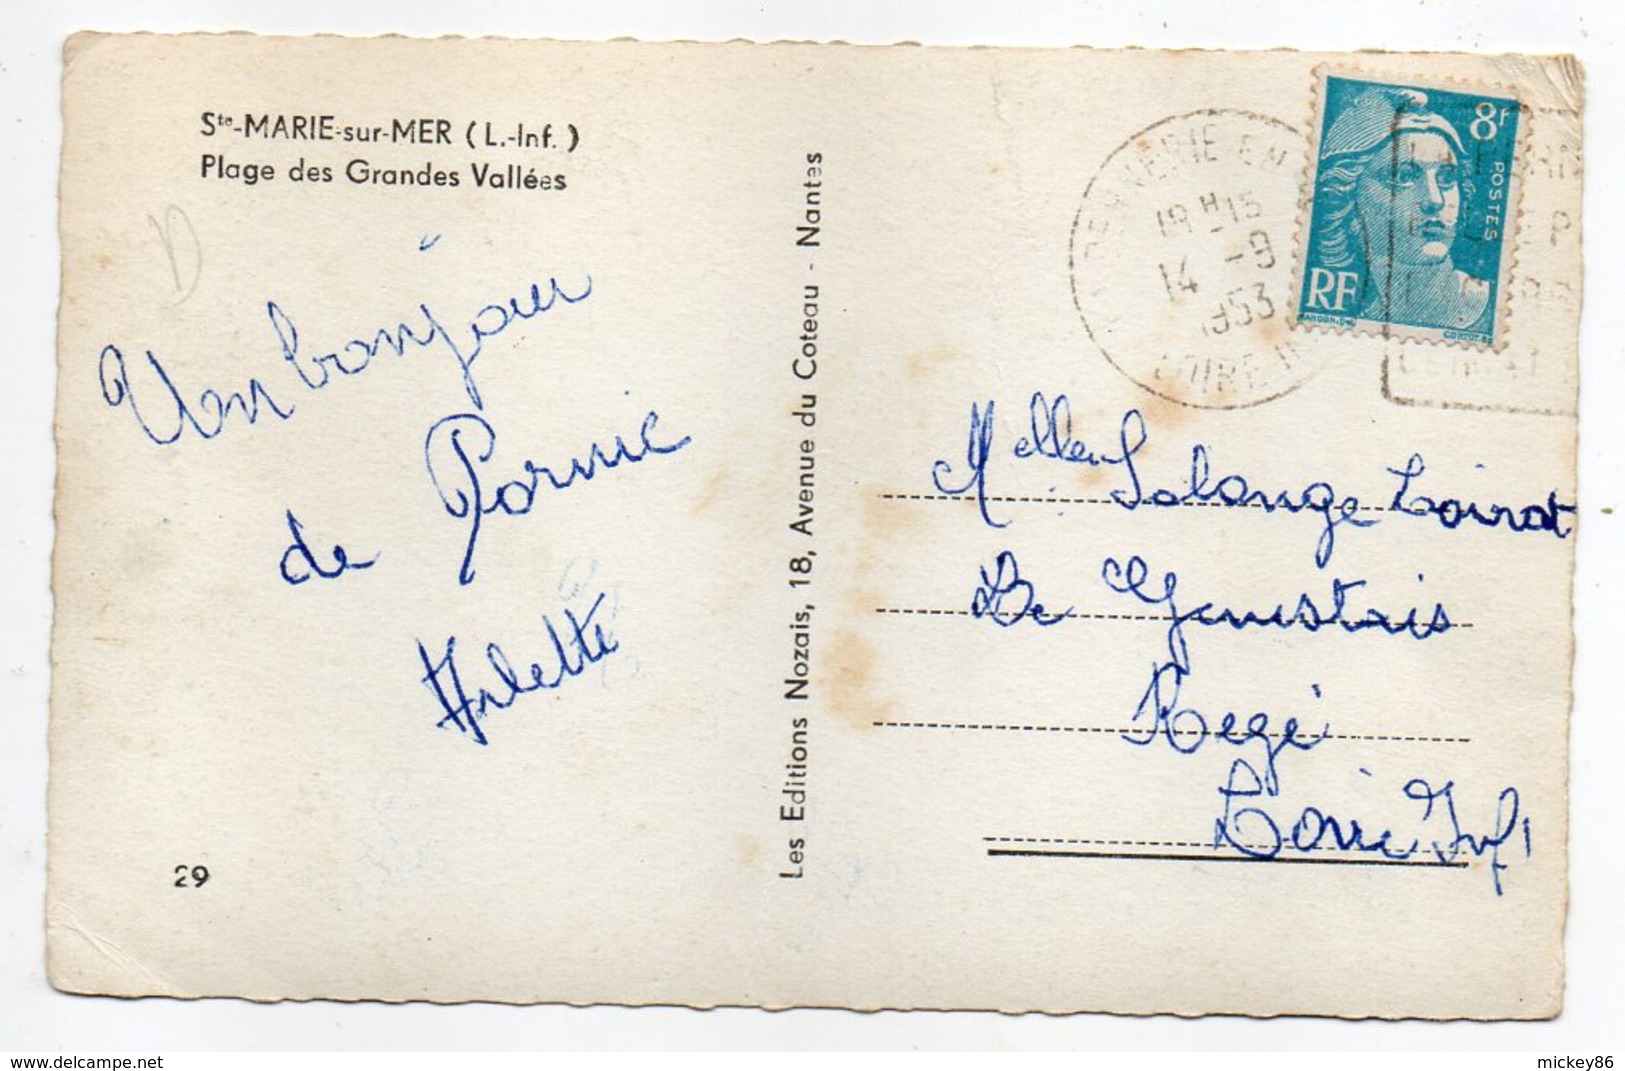 Ste-MARIE-sur-MER (L.-Inf.)
Plage des Grandes Vallées
Un bonjour
de Pornic
Arlette
29
Les Editions Nozais, 18, Avenue du Coteau - Nantes
BERNERIE EN
18H15
14 -9
1953
LOIRE IN
8F
POSTES
RF
CLIMAT
Melle Solange Loirat
Le
Regé
Loire Inf
mickey86
delcampe.net